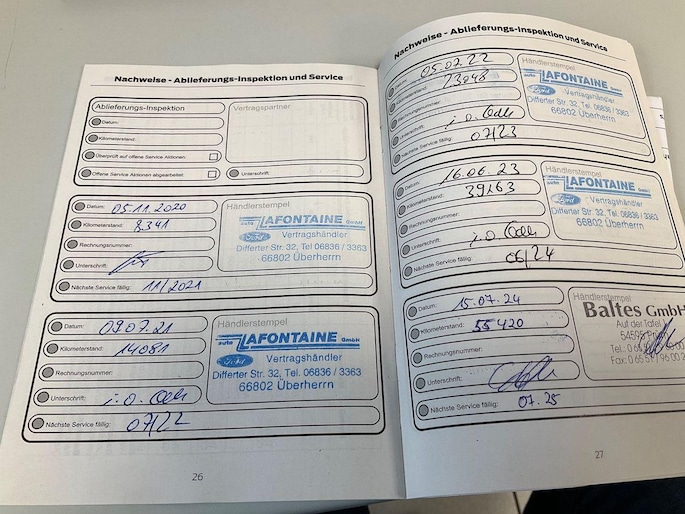 Nachweise - Ablieferungs-Inspektion und Service
Ablieferungs-Inspektion
Datum:
Kilometerstand:
Überprüft auf offene Service Aktionen:
Offene Service Aktionen abgearbeitet:
Vertragspartner
Unterschrift:
Datum: 05.11.2020
Kilometerstand: 8.341
Rechnungsnummer:
Unterschrift:
Nächste Service fällig: 11/2021
Händlerstempel
auto LAFONTAINE GmbH
Ford Vertragshändler
Differter Str. 32, Tel. 06836 / 3363
66802 Überherrn
Datum: 09.07.21
Kilometerstand: 14081
Rechnungsnummer:
Unterschrift: i.o.
Nächste Service fällig: 07/22
Händlerstempel
auto LAFONTAINE GmbH
Ford Vertragshändler
Differter Str. 32, Tel. 06836 / 3363
66802 Überherrn
26
Nachweise - Ablieferungs-Inspektion und Service
05.07.22
Kilometerstand: 23948
Rechnungsnummer:
Unterschrift: i.o.
Nächste Service fällig: 07/23
Händlerstempel
auto LAFONTAINE GmbH
Ford Vertragshändler
Differter Str. 32, Tel. 06836 / 3363
66802 Überherrn
Datum: 16.06.23
Kilometerstand: 39163
Rechnungsnummer:
Unterschrift: i.o.
Nächste Service fällig: 06/24
Händlerstempel
auto LAFONTAINE GmbH
Ford Vertragshändler
Differter Str. 32, Tel. 06836 / 3363
66802 Überherrn
Datum: 15.07.24
Kilometerstand: 55420
Rechnungsnummer:
Unterschrift:
Nächste Service fällig: 07.25
Händlerstempel
Baltes GmbH
Auf der
27